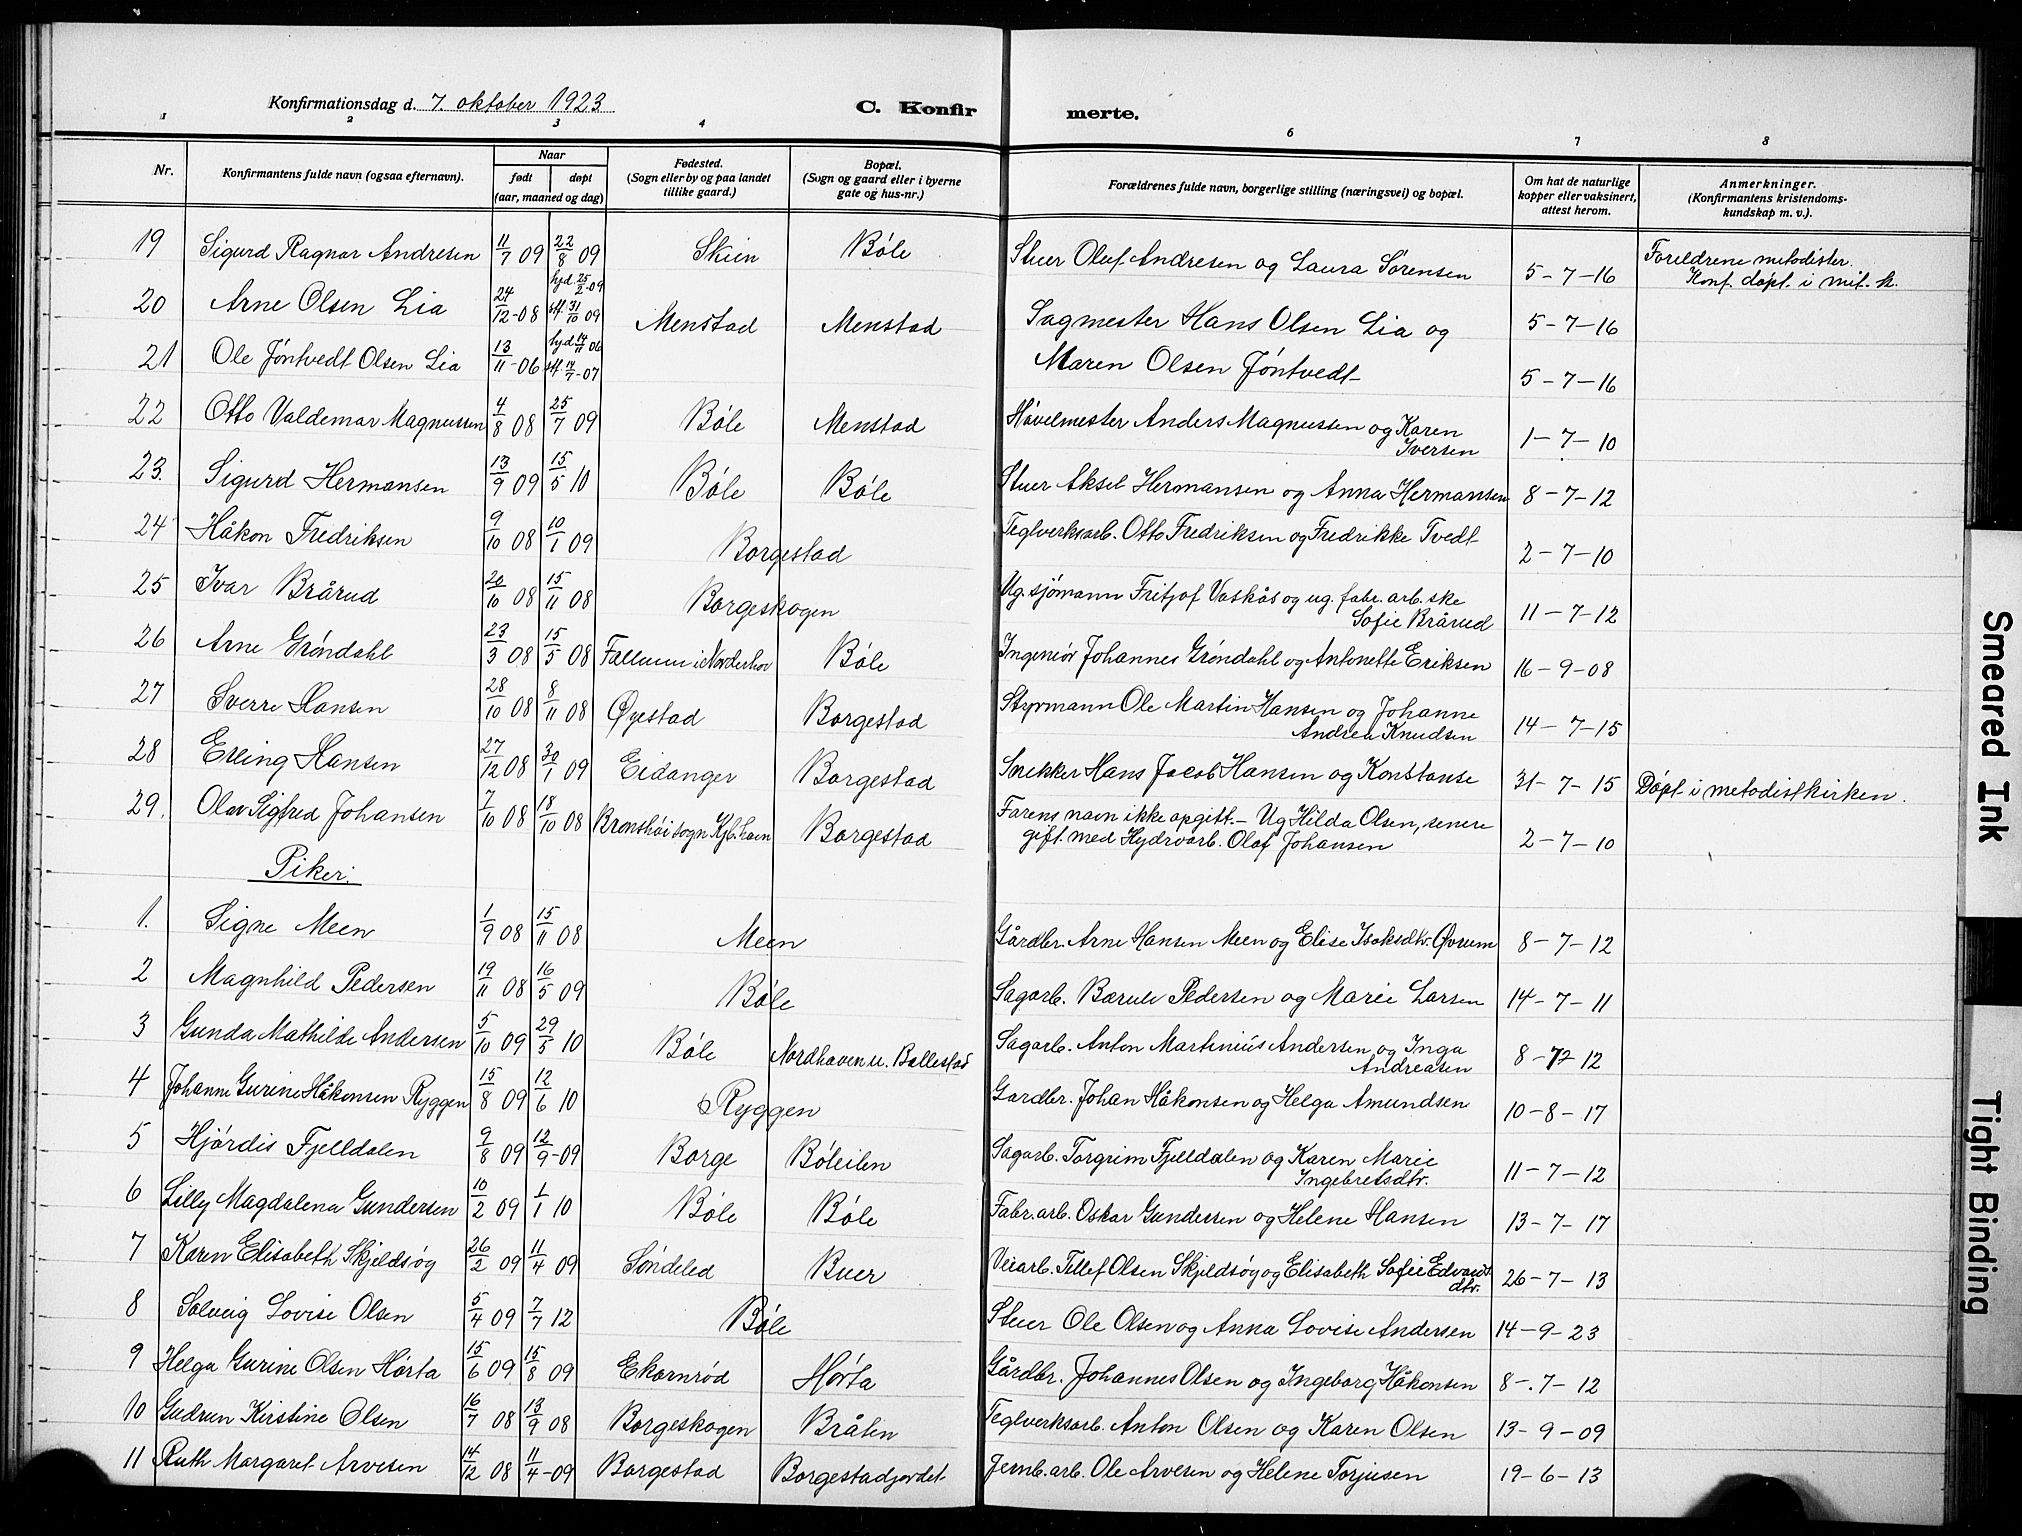 Konfirmationsdag d. 7. oktober 1923 C. Konfir merte.
1 2 3 4 6 7 8
Nr. Konfirmantens fulde navn (ogsaa efternavn). Naar født døpt (aar, maaned og dag) Fødested. (Sogn eller by og paa landet tillike gaard.) Bopæl. (Sogn og gaard eller i byerne gate og hus-nr.) Forældrenes fulde navn, borgerlige stilling (næringsvei) og bopæl. Om hat de naturlige kopper eller vaksinert, attest herom. Anmerkninger. (Konfirmantens kristendoms- kundskap m. v.).
19 Sigurd Ragnar Andresen 11/7 09 22/8 09 Skien Bøle Stuer Oluf Andresen og Laura Sørensen 5-7-16 Foreldrene metodister. Konf. døpt i met. k.
20 Arne Olsen Lia 24/12-08 hjd. 25/2-09 stf. 31/10 09 Menstad Menstad Sagmester Hans Olsen Lia og 5-7-16
21 Ole Jøntvedt Olsen Lia 13/11-06 hjd. 14/11 06 stf. 14/7-07 Maren Olsen Jøntvedt 5-7-16
22 Otto Valdemar Magnussen 4/8 08 25/7 09 Bøle Menstad Høvelmester Anders Magnussen og Karen Iversen 1-7-10
23. Sigurd Hermansen 13/9 09 15/5 10 Bøle Bøle Stuer Aksel Hermansen og Anna Hermansen 8-7-12
24 Håkon Fredriksen 9/10 08 10/1 09 Borgestad Teglverksarb. Otto Fredriksen og Fredrikke Tvedt 2-7-10
25 Ivar Brårud 20/10 08 15/11 08 Borgeskogen Ug. sjømann Fritjof Vaskås og ug. fabr. arb. ske Sofie Brårud 11-7-12
26 Arne Grøndahl 23/3 08 15/5 08 i Norderhov Bøle Ingeniør Johannes Grøndahl og Antonette Eriksen 16-9-08
27 Sverre Hansen 28/10 08 8/11 08 Øyestad Borgestad Styrmann Ole Martin Hansen og Johanne Andrea Knudsen 14-7-15
28 Erling Hansen 27/12 08 30/1 09 Eidanger Borgestad Snekker Hans Jacob Hansen og Konstanse 31-7-15 Døpt i metodistkirken.
29. Olav Sigfred Johansen 7/10 08 18/10 08 Brønshøi sogn Kjb.havn Borgestad Farens navn ikke opgitt. - Ug Hilda Olsen, senere gift med Hydroarb. Olaf Johansen 2-7-10
Piker.
1. Signe Meen 1/9 08 15/11 08 Meen Gårdbr. Arne Hansen Meen og Elise Isaksdtr. Øvrum 8-7-12
2 Magnhild Pedersen 19/11 08 16/5 09 Bøle Sagarb. Pedersen og Marie Larsen 14-7-11
3 Gunda Mathilde Andersen 5/10 09 29/5 10 Bøle Nordhaven u. Bollestad Sagarb. Anton Martinius Andersen og Inga Andreasen 8-7-12
4 Johanne Gurine Håkonsen Ryggen 15/8 09 12/6 10 Ryggen Gardbr. Johan Håkonsen og Helga Amundsen 10-8-17
5 Hjørdis Fjelldalen 9/8 09 12/9-09 Borge Bøleilen Sagarb. Torgrim Fjelldalen og Karen Marie Ingebretsdtr. 11-7-12
6 Lilly Magdalena Gundersen 10/2 09 1/1 10 Bøle Bøle Fabr. arb. Oskar Gundersen og Helene Hansen 13-7-17
7 Karen Elisabeth Skjeldsøy 26/2 09 11/4 09 Søndeled Buer Veiarb. Tellef Olsen Skjeldsøy og Elisabeth Sofie Edvardsdtr. 26-7-13
8 Solveig Lovise Olsen 5/4 09 7/7 12 Bøle Stuer Ole Olsen og Anna Lovise Andersen 14-9-23
9 Helga Gurine Olsen Hørta 15/6 09 15/8 09 Ekornrød Hørta Gårdbr. Johannes Olsen og Ingeborg Håkonsen 8-7-12
10 Gudrun Kirstine Olsen 16/7 08 13/9 08 Borgeskogen Bråten Teglverksarb. Anton Olsen og Karen Olsen 13-9-09
11 Ruth Margaret Arvesen 14/12 08 11/4-09 Borgestad Borgestadjordet Jernb. arb. Ole Arvesen og Helene Torjusen 19-6-13
Smeared Ink
Tight Binding